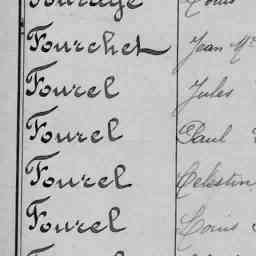 Fourchet Jean M
Fourel Jules
Fourel Paul
Fourel Celestin
Fourel Louis